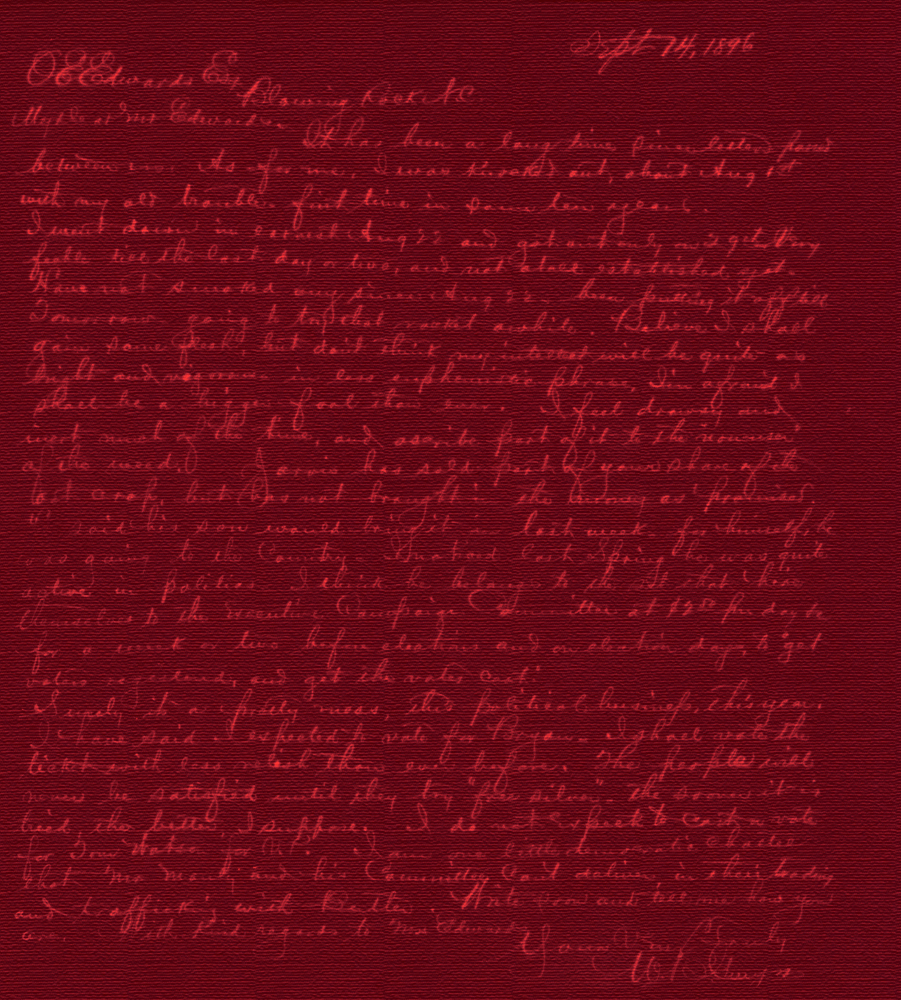 Sept 14, 1896
O E Edwards Esq
Blowing Rock N.C.
My Dear Mr Edwards.
It has been a long time since letters passed
between us. As for me, I was knocked out, about Aug 1st
with my old trouble. first time in some ten years.
I went down in earnest Aug 22 and got out only as 2 gits. Very
feeble till the last day or two, and not at all established yet.
Have not smoked any since Aug 22. been putting it off till
Tomorrow going to try that racket awhile. Believe I shall
gain some flesh, but don't think my interest will be quite as
bright and vigorous in less euphemistic phrase, I'm afraid I
shall be a bigger fool than ever. I feel drowsy and
inert much of the time, and ascribe part of it to the "nonuser"
of the weed. Jarvis has sold part of your share of the
oat crop, but has not brought in the money as promised.
said his son would bring it in last week. for himself, he
was going to the Country. Last Spring he was quite
active in politics. I think he belongs to the set that hire
themselves to the Executive Campaign Committee at $2.00 per day &c
for a week or two before elections and on election days, to "get
voters registered, and get the votes cast".
Surely it's a pretty mess, this political business, this year.
I have said I expected to vote for Bryan. I shall vote the
ticket with less relish than ever before. The people will
never be satisfied until they try "free silver". the sooner it is
tried, the better, I suppose. I do not expect to cast a vote
for Tom Watson for V.P. I am one little democratic
that Mr and his Committee can't deliver in their trading
and trafficking with Butler. Write soon and tell me how you
are. With kind regards to Mrs Edwards
Yours Very Sincerely